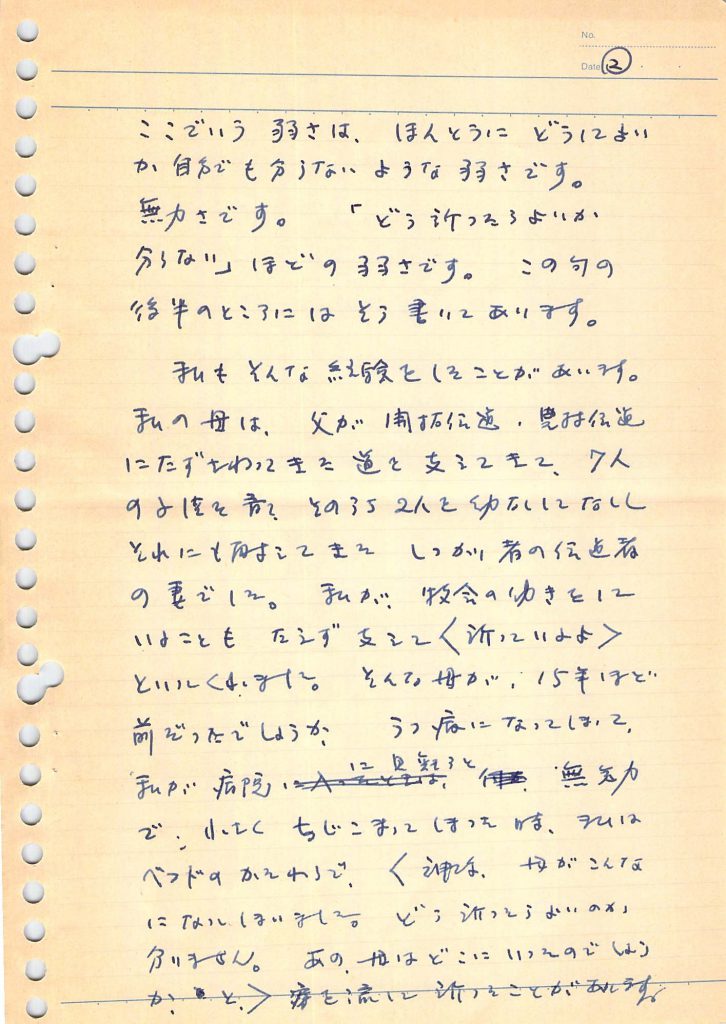 No.
Date ②
ここでいう 弱さは、ほんとうに どうしてよい
か 自分でも分らないような弱さです。
無力さです。 「どう祈ったらよいか
分らない」ほどの弱さです。 この句の
後半のところにはそう書いてあります。
私もそんな経験をしたことがあります。
私の母は、父が開拓伝道・農村伝道
にたずさわってきた道を支えてきて、7人
の子供を育て そのうち2人を幼なくしてなくし
それにも耐えてきた しっかり者の伝道者
の妻でした。 私が、牧会の働きをして
いることも たえず支えて〈祈っているよ〉
といってくれました。 そんな母が、15年ほど
前だったでしょうか、 うつ病になってしまって、
私が病院に見舞うと 無気力
で、小さく ちぢこまってしまった時、私は
ベッドのかたわらで、〈神様、母がこんな
になってしまいました。 どう祈ったらよいのか
分りません。 あの、母はどこにいったのでしょう
か? と、〉 涙を流して 祈ったことがあります。